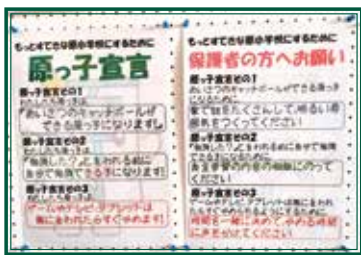 もっとすてきな原小学校にするために
原っ子宣言
原っ子宣言その1
わたしたち原っ子は
「あいさつのキャッチボールが
できる原っ子になります!」
原っ子宣言その2
わたしたち原っ子は
「勉強した?」と言われる前に
自分で勉強できる子になります!
原っ子宣言その3
わたしたち原っ子は
ゲームやテレビ、タブレットは
親に言われたらすぐやめます!
もっとすてきな原小学校にするために
保護者の方へお願い
原っ子宣言その1
あいさつのキャッチボールができる原っ子
になるために
家で会話をたくさんして、明るい雰
囲気をつくってください
原っ子宣言その2
「勉強した?」と言われる前に自分で勉強
できる子になるために
自主学習の内容の相談にのって
ください
原っ子宣言その3
ゲームやテレビ、タブレットは親に言われ
たらすぐやめられるようにするために
時間を一緒に決めて、やめる時間
に声をかけてください